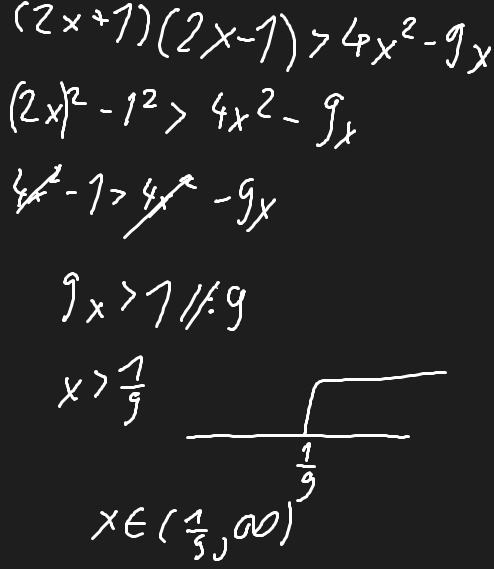 (2x+1)(2x-1) > 4x² - 9x
(2x)² - 1² > 4x² - 9x
4x² - 1 > 4x² - 9x
9x > 1 //:9
x > 1/9
1/9
x ∈ (1/9, ∞)